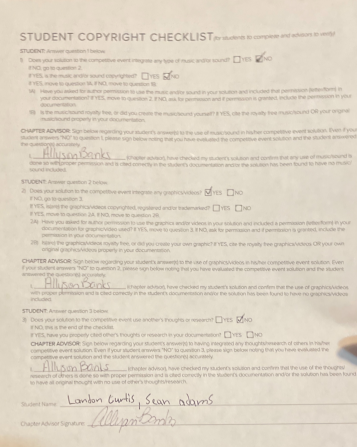 STUDENT COPYRIGHT CHECKLIST (for students to complete and advisors to verify)
STUDENT: Answer question 1 below.
1) Does your solution to the competitive event integrate any type of music and/or sound? YES NO
If NO, go to question 2.
If YES, is the music and/or sound copyrighted? YES NO
If YES, move to question 1A. If NO, move to question 1B.
1A) Have you asked for author permission to use the music and/or sound in your solution and included that permission (letter/form) in
your documentation? If YES, move to question 2. If NO, ask for permission and if permission is granted, include the permission in your
documentation.
1B) Is the music/sound royalty free, or did you create the music/sound yourself? If YES, cite the royalty free music/sound OR your original
music/sound properly in your documentation.
CHAPTER ADVISOR: Sign below regarding your student's answer(s) to the use of music/sound in his/her competitive event solution. Even if your
student answers "NO" to question 1, please sign below noting that you have evaluated the competitive event solution and the student answered
the question(s) accurately.
I, Allyson Banks (chapter advisor), have checked my student's solution and confirm that any use of music/sound is
done so with proper permission and is cited correctly in the student's documentation and/or the solution has been found to have no music/
sound included.
STUDENT: Answer question 2 below.
2) Does your solution to the competitive event integrate any graphics/videos? YES NO
If NO, go to question 3.
If YES, is/are the graphics/videos copyrighted, registered and/or trademarked? YES NO
If YES, move to question 2A. If NO, move to question 2B.
2A) Have you asked for author permission to use the graphics and/or videos in your solution and included a permission (letter/form) in your
documentation for graphics/video used? If YES, move to question 3. If NO, ask for permission and if permission is granted, include the
permission in your documentation.
2B) Is/are the graphics/videos royalty free, or did you create your own graphic? If YES, cite the royalty free graphics/videos OR your own
original graphics/videos properly in your documentation.
CHAPTER ADVISOR: Sign below regarding your student's answer(s) to the use of graphics/videos in his/her competitive event solution. Even
if your student answers "NO" to question 2, please sign below noting that you have evaluated the competitive event solution and the student
answered the question(s) accurately.
I, Allyson Banks (chapter advisor), have checked my student's solution and confirm that the use of graphics/videos
with proper permission and is cited correctly in the student's documentation and/or the solution has been found to have no graphics/videos
included.
STUDENT: Answer question 3 below.
3) Does your solution to the competitive event use another's thoughts or research? YES NO
If NO, this is the end of the checklist.
If YES, have you properly cited other's thoughts or research in your documentation? YES NO
CHAPTER ADVISOR: Sign below regarding your student's answer(s) to having integrated any thoughts/research of others in his/her
competitive event solution. Even if your student answers "NO" to question 3, please sign below noting that you have evaluated the
competitive event solution and the student answered the question(s) accurately.
I, Allyson Banks (chapter advisor), have checked my student's solution and confirm that the use of the thoughts/
research of others is done so with proper permission and is cited correctly in the student's documentation and/or the solution has been found
to have all original thought with no use of other's thoughts/research.
Student Name: Landon Curtis, Sean Adams
Chapter Advisor Signature: Allyson Banks